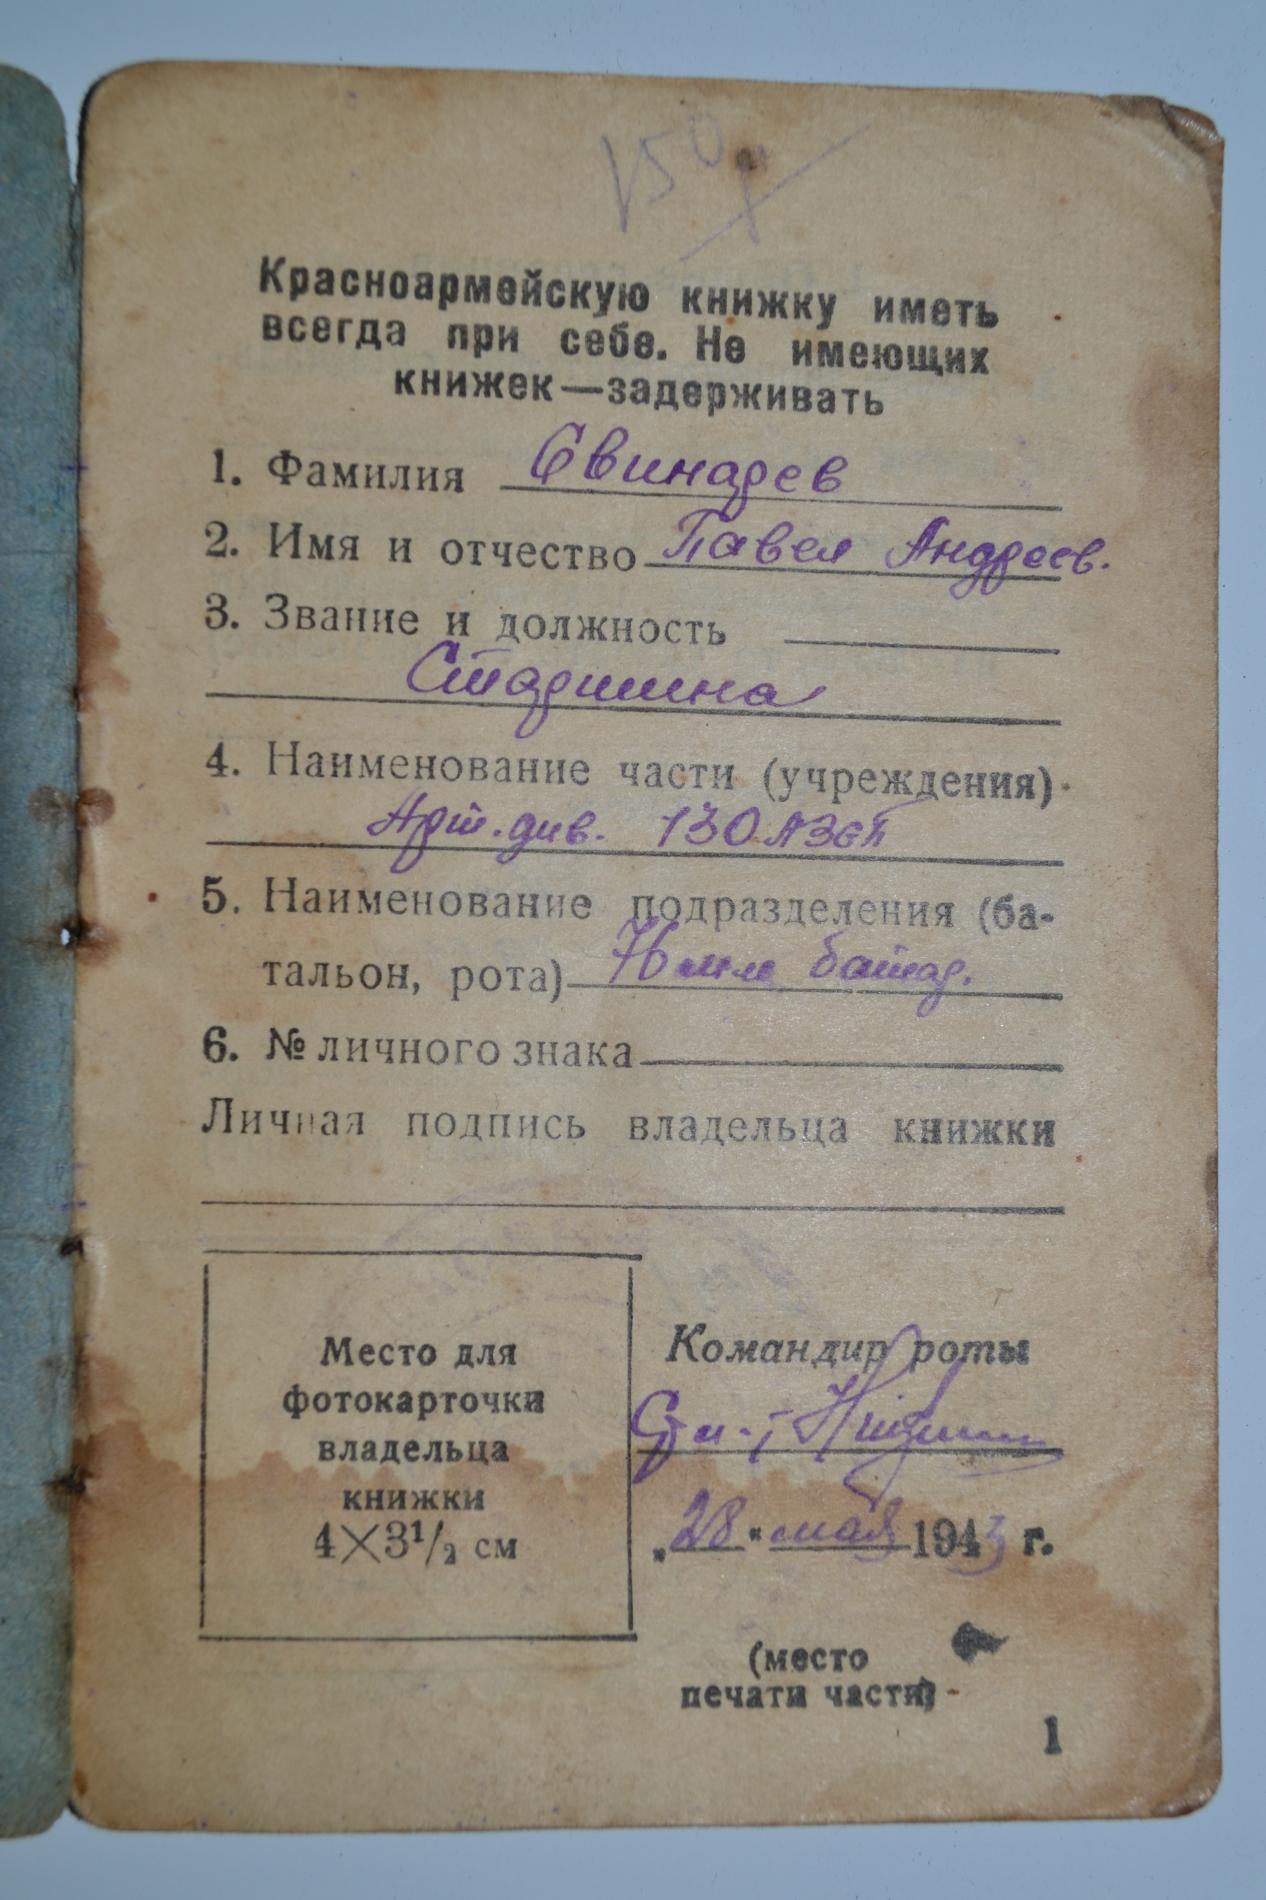 150
Красноармейскую книжку иметь
всегда при себе. Не имеющих
книжек—задерживать
1. Фамилия Свинарев
2. Имя и отчество Павел Андреев.
3. Звание и должность
Старшина
4. Наименование части (учреждения)
Арт. див. 130 АЗСП
5. Наименование подразделения (ба-
тальон, рота) 76 мм батар.
6. № личного знака
Личная подпись владельца книжки
Место для
фотокарточки
владельца
книжки
4×3½ см
Командир роты
"28" мая 1943 г.
(место
печати части)
1